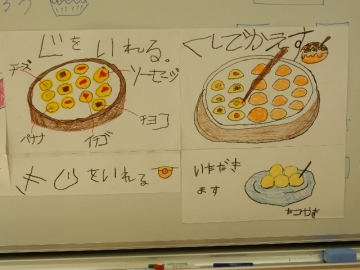 じをいれる。
チーズ
ソーセージ
バナナ
イチゴ
チョコ
きじをいれる
くしでかえす
いただき
ます
たこやき